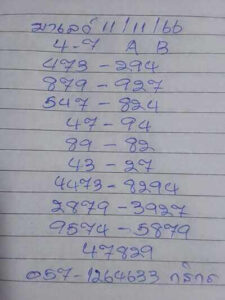 มาเลย์ 11/11/66
4-7 A B
473-294
879-927
547-824
47-94
89-82
43-27
4473-8294
2879-3927
9574-5879
47829
057-1264633